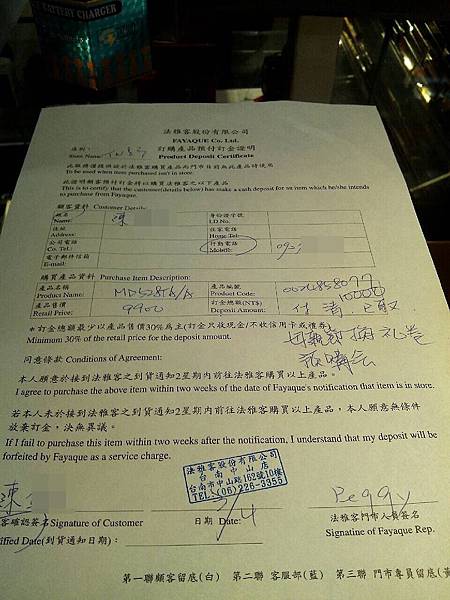 BATTERY CHARGER
法雅客股份有限公司
FAYAQUE Co. Ltd.
店別:
Store Name
訂購產品預付訂金證明
Product Deposit Certificate
To be used when item purchased isn't in store.
此證明顧客預付訂金將以購買法雅客之以下產品
This is to certify that the customer(details below) has make a cash deposit for an item which he/she intends
to purchase from Fayaque.
顧客資料 Customer Details:
姓名 Name: 陳 身份證字號 I.D.No.
住址 Address: 住家電話 Home Tel:
公司電話 Co. Tel.: 行動電話 Mobile:
電子郵件信箱 E-mail:
購買產品資料 Purchase Item Description:
產品名稱 Product Name: MD528TA/A 產品編號 Product Code:
產品售價 Retail Price: 9900 訂金總額(NT$) Deposit Amount: 10000
付清,已取
*訂金總額最少以產品售價30%為主(訂金只收現金/不收信用卡或禮券)
Minimum 30% of the retail price for the deposit amount.
同意條款 Conditions of Agreement:
本人願意於接到法雅客之到貨通知2星期內前往法雅客購買以上產品。
I agree to purchase the above item within two weeks of the date of Fayaque's notification that item is in store.
若本人未於接到法雅客之到貨通知2星期內前往法雅客購買以上產品,本人願意無條件
放棄訂金,決無異議。
If I fail to purchase this item within two weeks after the notification, I understand that my deposit will be
forfeited by Fayaque as a service charge.
法雅客股份有限公司
台南中山店
台南市中山路162號10樓
TEL:(06)226-3355
陳
Peggy
客確認簽名Signature of Customer
日期 Date:
法雅客門市人員簽名
Signatine of Fayaque Rep.
ified Date(到貨通知日期):
第一聯顧客留底(白) 第二聯 客服部(藍) 第三聯 門市專員留底(黃